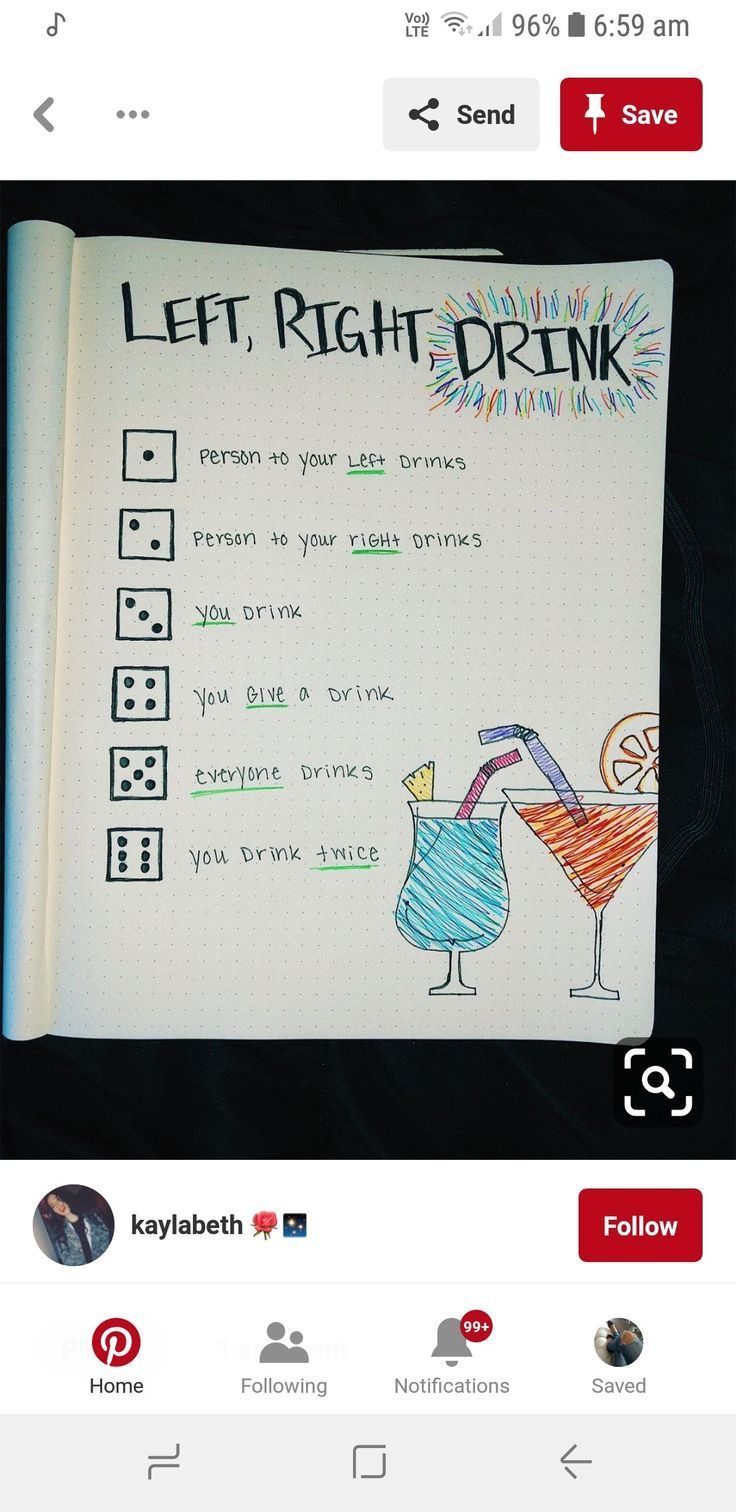 Vo)) LTE 96% 6:59 am
Send
Save
LEFT, RIGHT, DRINK
Person to your Left Drinks
Person to your riGHt Drinks
you Drink
you Give a Drink
everyone Drinks
you Drink twice
kaylabeth
Follow
99+
Home Following Notifications Saved